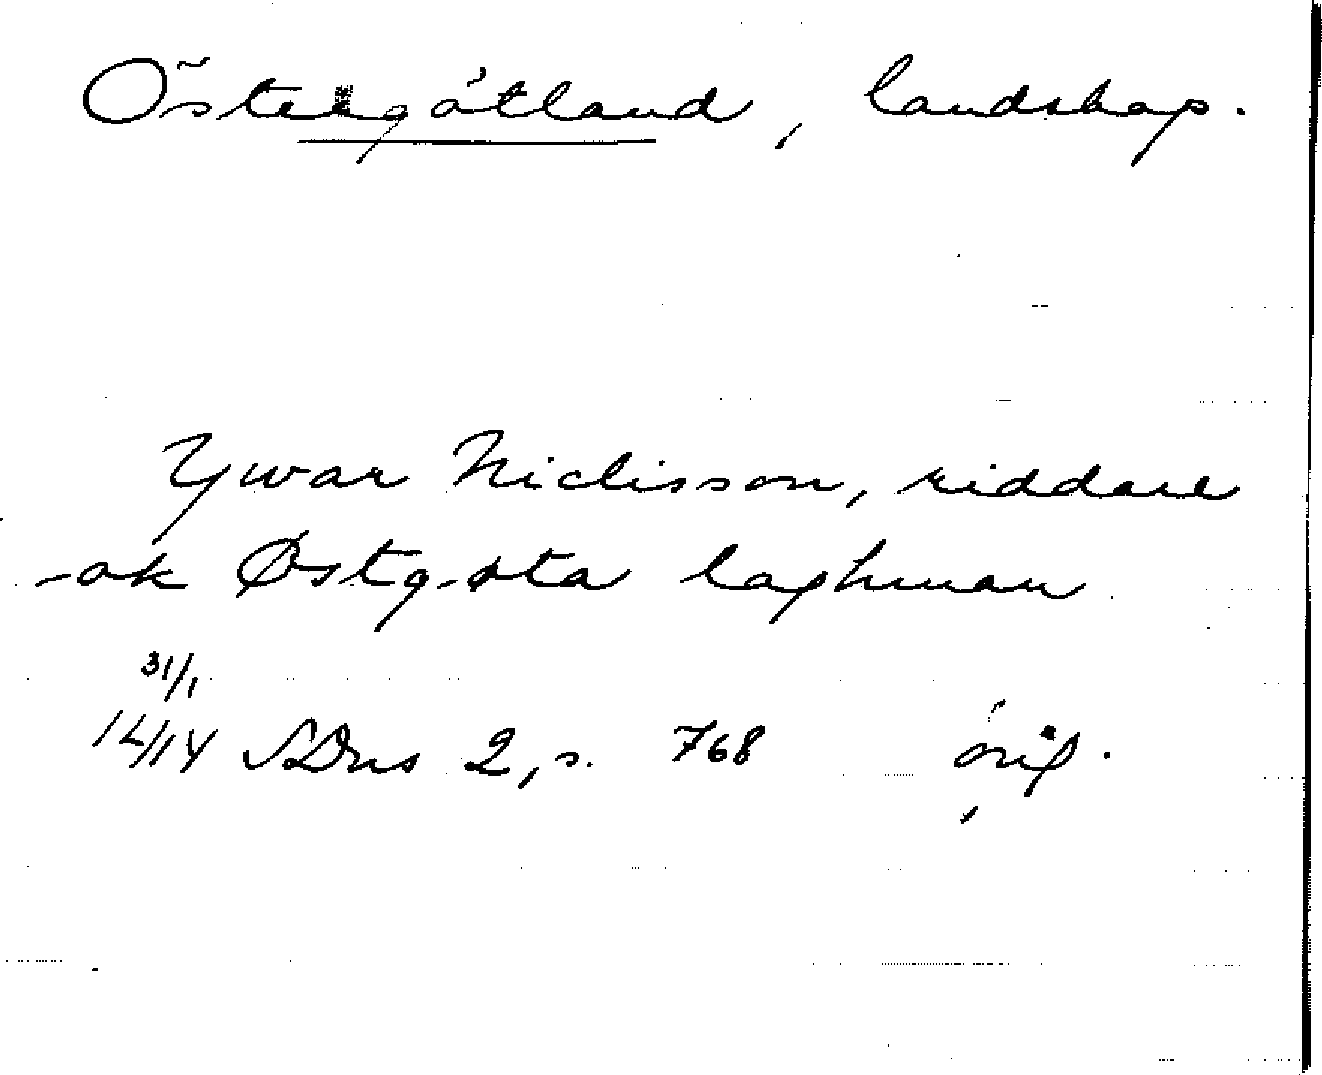 Östergötland, landskap.
Ywar Niclisson, riddare
ok Østgøta laghman
31/1
14/14 SDns 2, s. 768 orig.